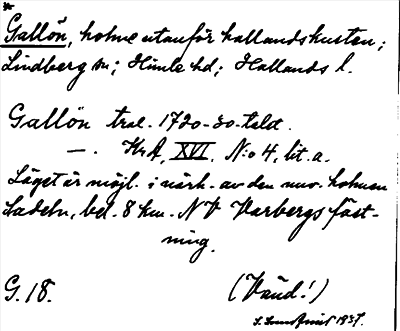 *
Gallön, holme utanför hallandskusten;
Lindberg sn; Himle hd; Hallands l.
Gallön tral. 1720-30-talet.
—. KrA, XVI. N:o 4, lit. a.
Läget är möjl. i närh. av den nuv. holmen
bel. 8 km. NV Varbergs fäst-
ning.
G. 18.
(Vänd!)
1937.